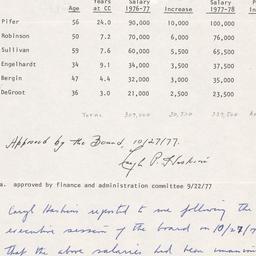 Years Salary Salary P
Age at CC 1976-77 Increase 1977-78 In
Pifer 56 24.0 90,000 10,000 100,000
Robinson 50 7.2 70,000 6,000 76,000
Sullivan 59 7.6 60,000 5,500 65,500
Engelhardt 34 9.1 34,000 3,500 37,500
Bergin 47 4.4 32,000 3,000 35,000
DeGroot 36 3.0 21,000 2,500 23,500
Total 307,000
Approved by the Board, 10/27/77.
Caryl P. Haskins
a. approved by finance and administration committee 9/22/77
Caryl Haskins reported to me following the
executive session of the board on 10/27/7
that the above salaries had been unanimou